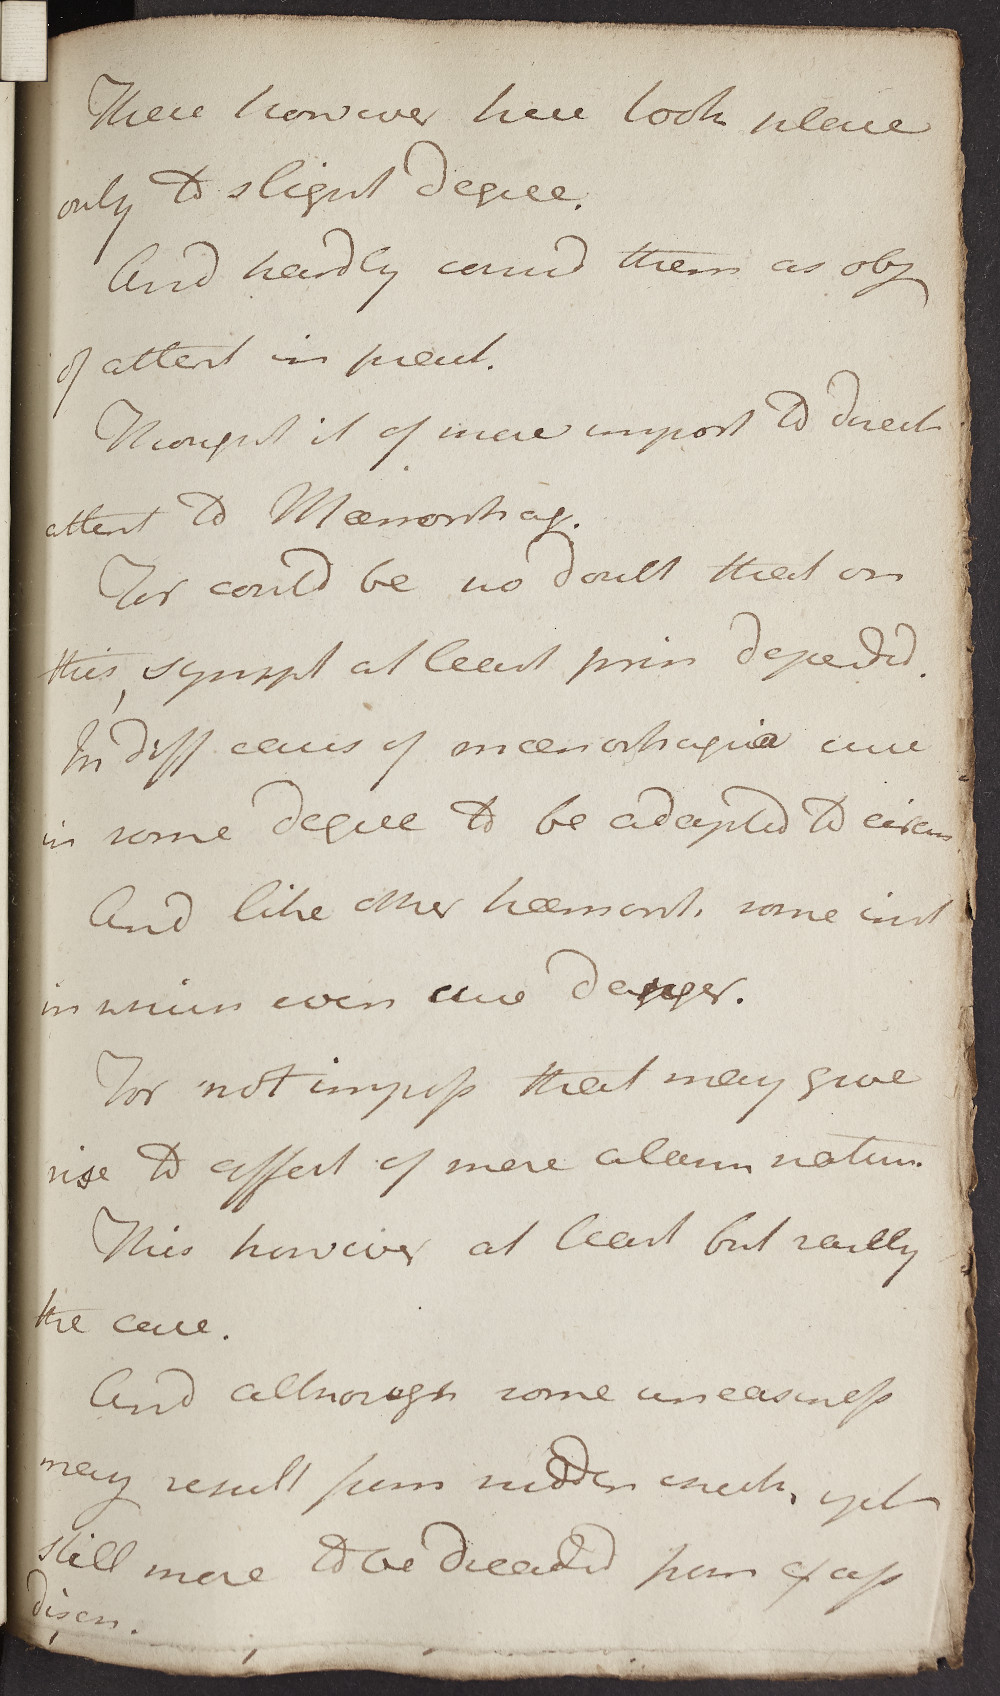 These however here took place
only to slight degree.
And hardly consid them as obj
of attent in precut.
Thought it of more import to direct
attent to Mænorrhag.
For could be no doubt that on
this sympt at least prin depended.
In diff cases of mænorrhagia cure
in some degree to be adapted to circum.
And like other hæmorrh. some inst
in which even cure danger.
For not imposs that may give
rise to affect of more alarm nature.
This however at least but rarely
the case.
And although some uneasiness
may result from sudden check, yet
still more to be dreaded from
discn.